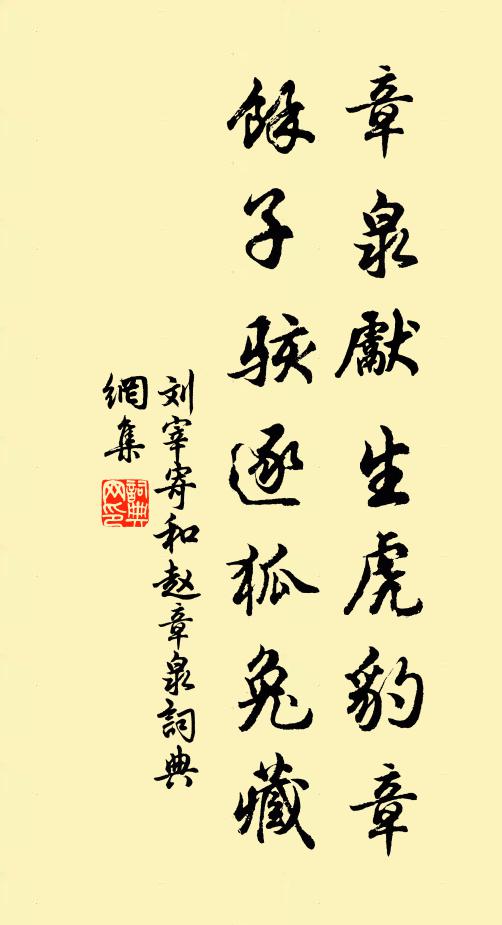 章泉獻生虎豹章
餘子駭逐狐兔藏
刘宰寄和赵章泉詞典
網集
詞典
网印